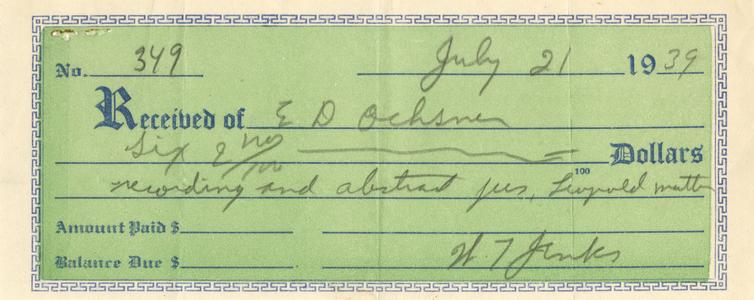 No. 349 July 21 1939
Received of E D Ochsner
Six & no/100 Dollars
100
recording and abstract fees, Leopold matter
Amount Paid $
Balance Due $ W. T Jenks